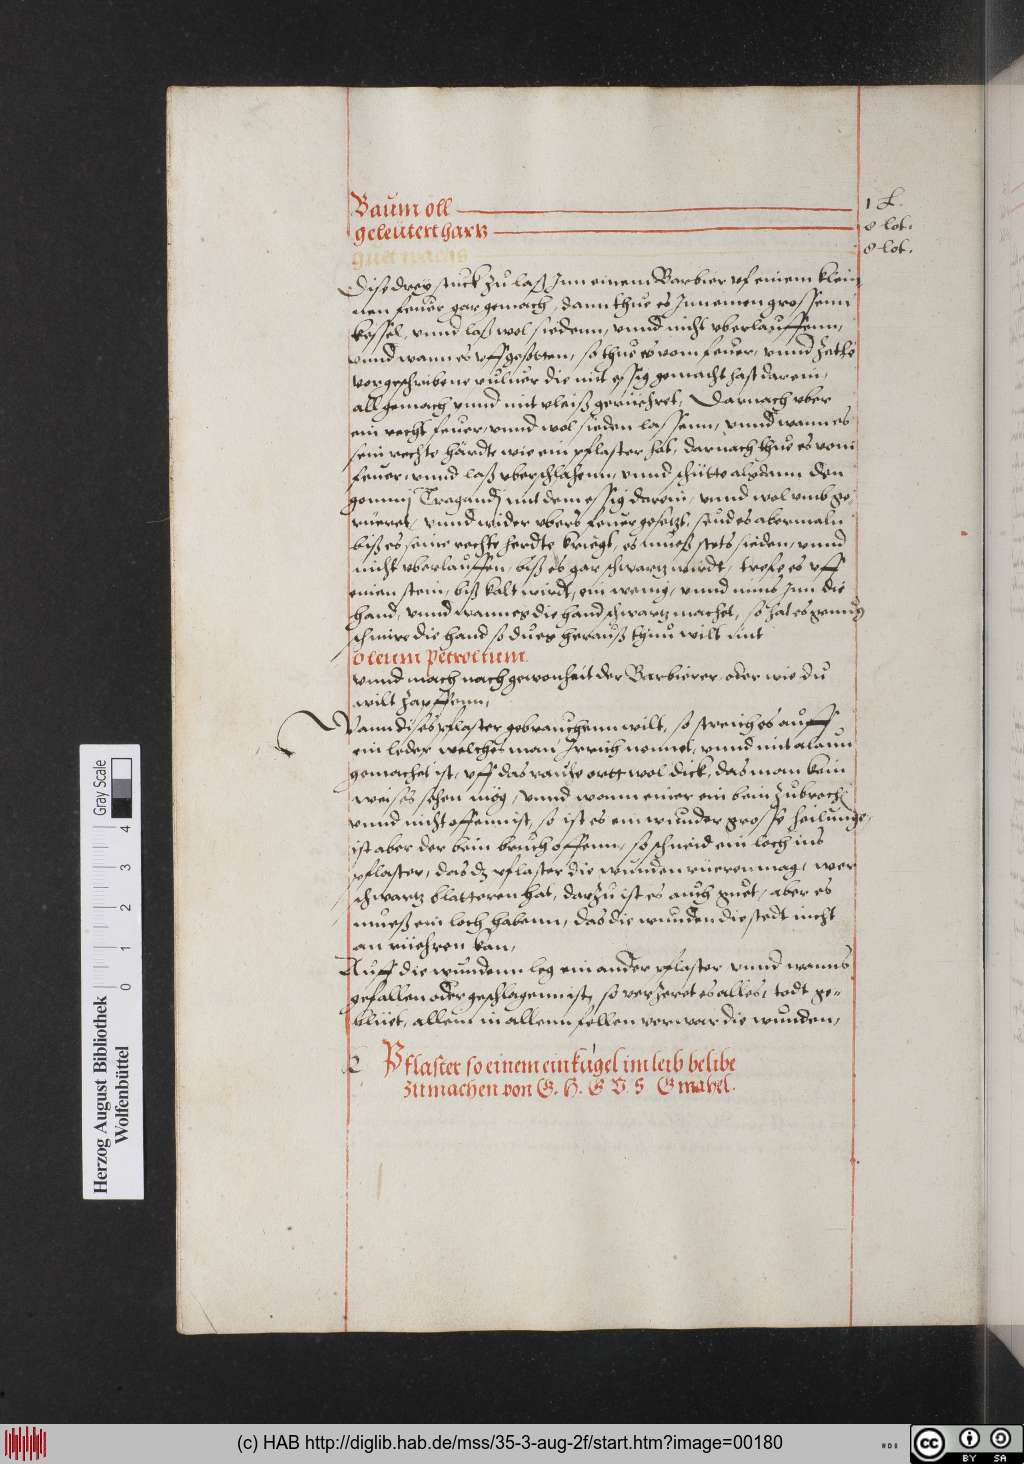 Baum oll 1 ℔.
geleütert hartz 8 lot.
guet wachs 8 lot.
Dise drey stuckh zu laß Jnn einem Barbier vf einem klein
nen feuer gar gemach, dann thue es Jnn einen grossenn
kessel, vnnd laß wol siedenn, vnnd nicht vberlauffenn,
vnnd wann es vffgesotten, so thue es vom feuer, vnnd
vorgeschribene puluer die mit essig gemacht hast darein,
all gemach vnnd mit vleiß gerüehret, Darnach vber
ein recht feuer, vnnd wol sieden lassenn, vnnd wann es
sein rechte härdte wie ein pflaster hat, darnach thue es vom
feuer, vnnd laß vberschlahenn, vnnd schütte alßdann den
gommj Tragandj mit dem essig darein, vnnd wol vmb ge
rüeret, vnnd wider vbers feuer gesetzt, seüd es abermaln
biß es seine rechte herdte kriegt, es mueß stets sieden, vnnd
nicht vberlauffen, biß es gar schwartz wirdt, es vff
einen stein, biß kalt wirdt, ein wenig, vnnd nims Jnn die
hand, vnnd wann es die hand schwartz machet, so hat es genug
schmire die hand so du es herauß thun wilt mit
Oleum Petrolium
vnnd mach nach gewonheit der Barbierer, oder wie du
wilt zapffenn,
Wann dises pflaster gebrauchenn wilt, so streich es auff
ein leder welches man Jrrich nennet, vnnd mit alaun
gemachet ist, vff das rauhe ortt wol dick, das man kein
weisses sehen mög, vnnd wann einer ein bein zubrech
vnnd nicht offenn ist, so ist es ein wunder grosse heilunge,
ist aber der bein bruch offenn, so schneid ein loch ins
pflaster, das dz pflaster die wunden nit rüeren mag, wer
schwartz blatteren hat, darzu ist es auch guet, aber es
mueß ein loch habenn, das die wunden die stedt nicht
an rüehren kan,
Auff die wundenn leg ein ander pflaster vnnd wanns
gefallen oder geschlagenn ist, so verzeret es alles, todt ge-
blüet, allein in allenn fellen verwar die wunden,
Pflaster so einem ein kugel im leib belibe
zumachen von G. H. G V. S Gmahel.
Herzog August Bibliothek
Wolfenbüttel
0 1 2 3 4
Gray Scale
(c) HAB http://diglib.hab.de/mss/35-3-aug-2f/start.htm?image=00180
cc BY SA